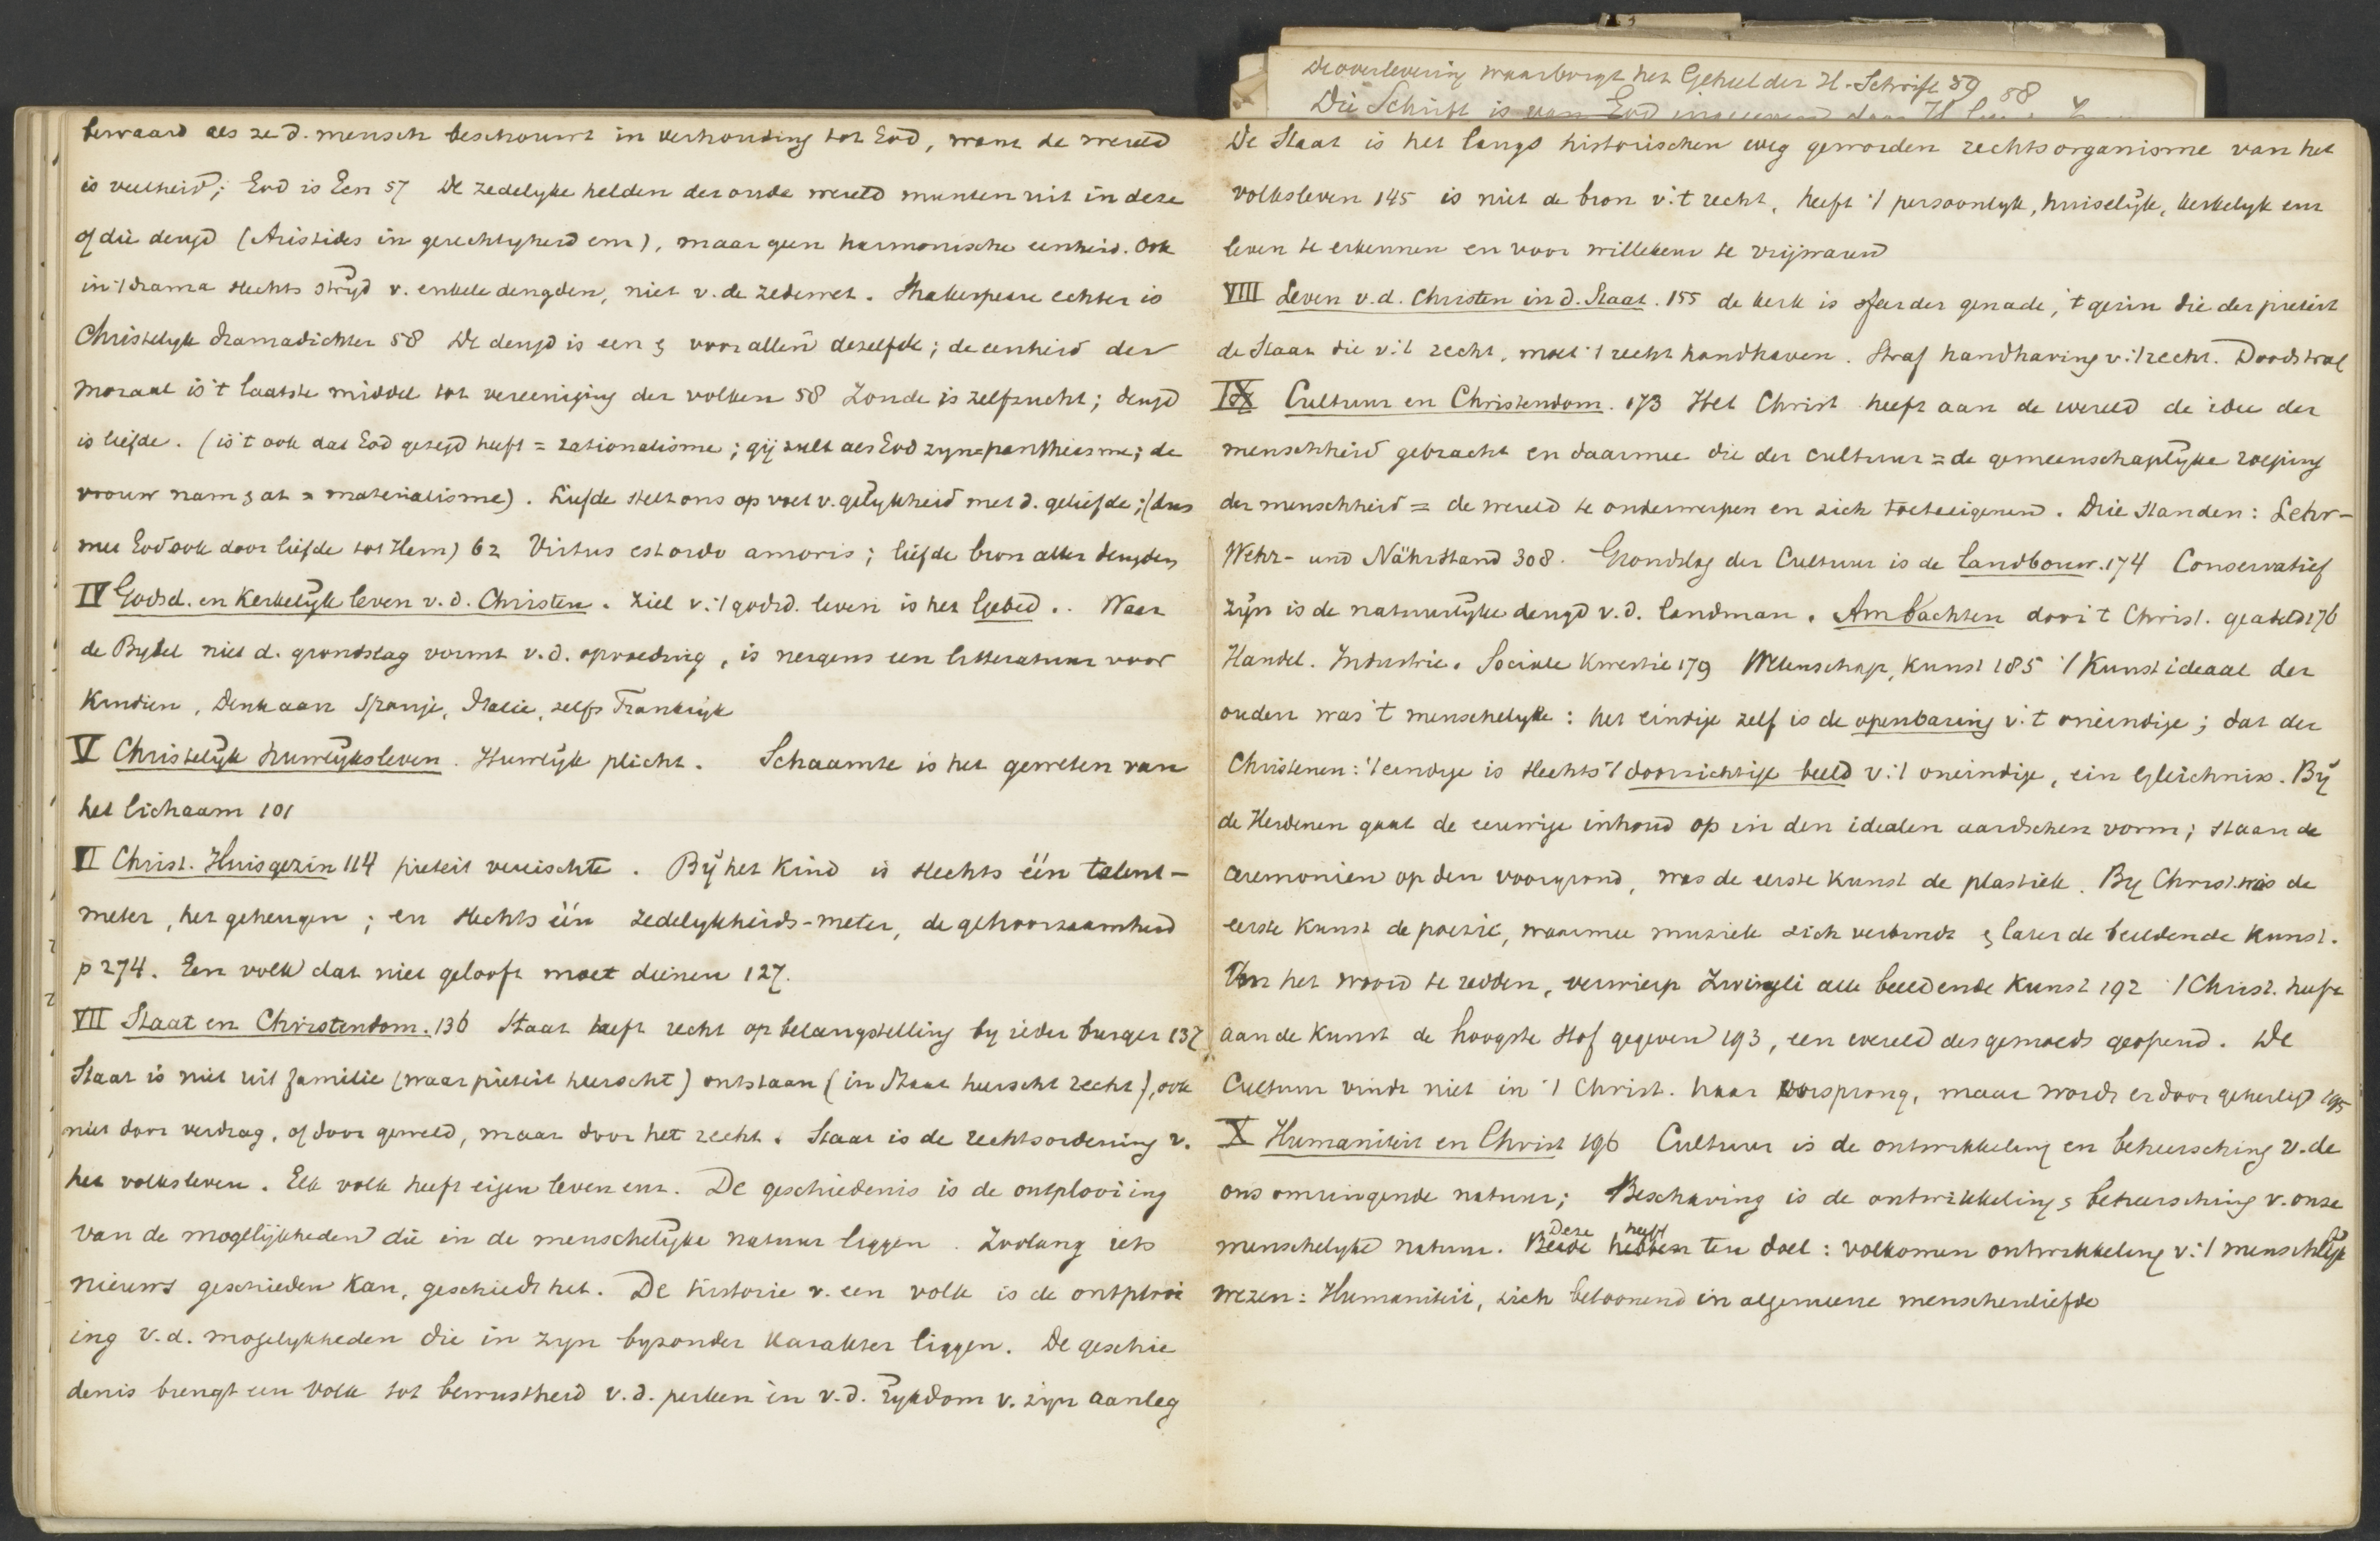 De overlevering waarborgt het Geheel der H. Schrift 59
58
Die Schrift is van God ingegeven door H.
bewaard als ze d. mensch beschouwt in verhouding tot God, want de wereld
is veelheid; God is Een 57 De zedelyke helden der oude wereld munten uit in deze
of die deugd (Aristides in gerechtigheid enz), maar geen harmonische eenheid. Ook
in 't drama slechts stryd v. enkele deugden, niet v. de zedewet. Shakespeare echter is
Christelyk dramadichter 58 De deugd is een & voor allen dezelfde; de eenheid der
moraal is 't laatste middel tot vereeniging der volken 58 Zonde is zelfzucht; deugd
is liefde. (is 't ook dat God gezegd heeft = rationalisme; gij zult als God zyn = pantheisme; de
vrouw nam & at = materialisme). Liefde stelt ons op voet v. gelykheid met d. geliefde; (dus
met God ook door liefde tot Hem) 62 Virtus est ordo amoris; liefde bron aller deugden
IV Godsd. en Kerkelyk leven v. d. Christen. Ziel v. 't godsd. leven is het Gebed.. Waar
de Bybel niet d. grondslag vormt v. d. opvoeding, is nergens een litteratuur voor
kindren, Denk aan Spanje, Italie, zelfs Frankryk
V Christelyk huwelyksleven. Huwelyk plicht. Schaamte is het geweten van
het lichaam 101
VI Christ. Huisgezin 114 pieteit vereischte. Bij het Kind is slechts één talent-
meter, het geheugen; en slechts één zedelykheids-meter, de gehoorzaamheid
p 274. Een volk dat niet gelooft moet dienen 127.
VII Staat en Christendom. 136 Staat heeft recht op belangstelling by ieder burger 137
Staat is niet uit familie (waar pieteit heerscht) ontstaan (in Staat heerscht recht), ook
niet door verdrag, of door geweld, maar door het recht. Staat is de rechtsordening v.
het volksleven. Elk volk heeft eigen leven enz. De geschiedenis is de ontplooiing
van de mogelijkheden die in de menschelyke natuur liggen. Zoolang iets
nieuws geschieden kan, geschiedt het. De historie v. een volk is de ontplooi
ing v. d. mogelykheden die in zyn byzonder karakter liggen. De geschie
denis brengt een volk tot bewustheid v. d. perken èn v. d. rykdom v. zijn aanleg
De Staat is het langs historischen weg geworden rechtsorganisme van het
volksleven 145 is niet de bron v. 't recht, heeft 't persoonlyk, huiselijk, kerkelyk enz
leven te erkennen en voor willekeur te vrijwaren
VIII Leven v. d. Christen in d. Staat. 155 de kerk is sfeer der genade, 't gezin die der pieteit
de Staat die v. 't recht, moet 't recht handhaven. Straf handhaving v. 't recht. Doodstraf
IX Cultuur en Christendom. 173 Het Christ heeft aan de wereld de idee der
menschheid gebracht en daarmee die der cultuur = de gemeenschaplyke roeping
der menschheid = de wereld te onderwerpen en zich toeteeigenen. Drie standen: Lehr-
Wehr- und Nährstand 308. Grondslag der Cultuur is de landbouw. 174 Conservatief
zijn is de natuurlyke deugd v. d. landman. Ambachten door 't Christ. geadeld 176
Handel. Industrie. Sociale Kwestie 179 Wetenschap, Kunst 185 't Kunstideaal der
ouden was 't menschelyke: het eindige zelf is de openbaring v. 't oneindige; dat der
Christenen: 't eindige is slechts 't doorzichtige beeld v. 't oneindige, ein Gleichniss. Bij
de Heidenen gaat de eeuwige inhoud op in den idealen aardschen vorm; staan de
ceremonien op den voorgrond, was de eerste kunst de plastiek. By Christ. was de
eerste kunst de poezie, waarmee muziek zich verbindt & later de beeldende kunst.
Om het woord te redden, verwierp Zwingli alle beeldende Kunst 192 't Christ. heeft
aan de kunst de hoogste stof gegeven 193, een wereld des gemoeds geopend. De
Cultuur vindt niet in 't Christ. haar oorsprong, maar wordt er door geheiligd 195
X Humaniteit en Christ 196 Cultuur is de ontwikkeling en beheersching v. de
ons omringende natuur; Beschaving is de ontwikkeling & beheersching v. onze
menschelyke natuur. Beide hebben Deze heeft ten doel: volkomen ontwikkeling v. 't menschlyk
wezen: Humaniteit, zich betoonend in algemeene menschenliefde